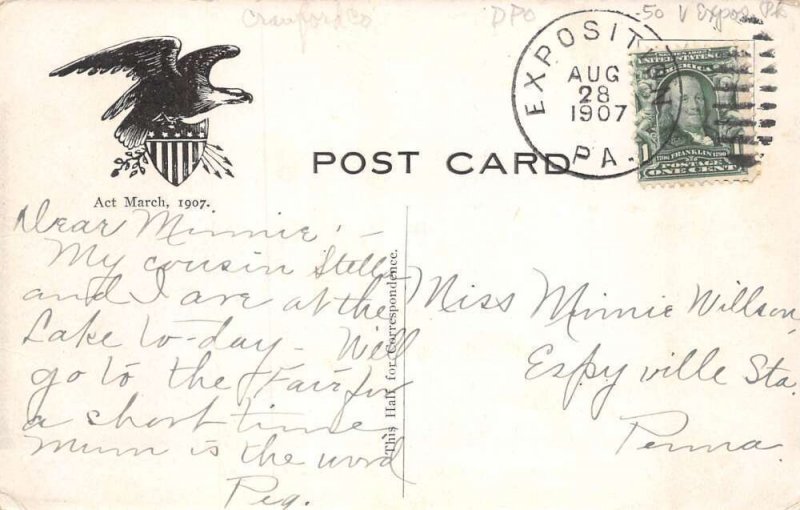 Crawford Co
DPO
.50 V Expos. Pk
EXPOSITION
AUG
28
1907
PA.
UNITED STATES
AMERICA
1706 FRANKLIN 1790
POSTAGE
ONE CENT
POST CARD
Act March, 1907.
This Half for Correspondence.
Dear Minnie :-
My cousin Stella
and I are at the
Lake to-day. Will
go to the Fair for
a short time
Mum is the word
Peg.
Miss Minnie Willson,
Espyville Sta.
Penna.